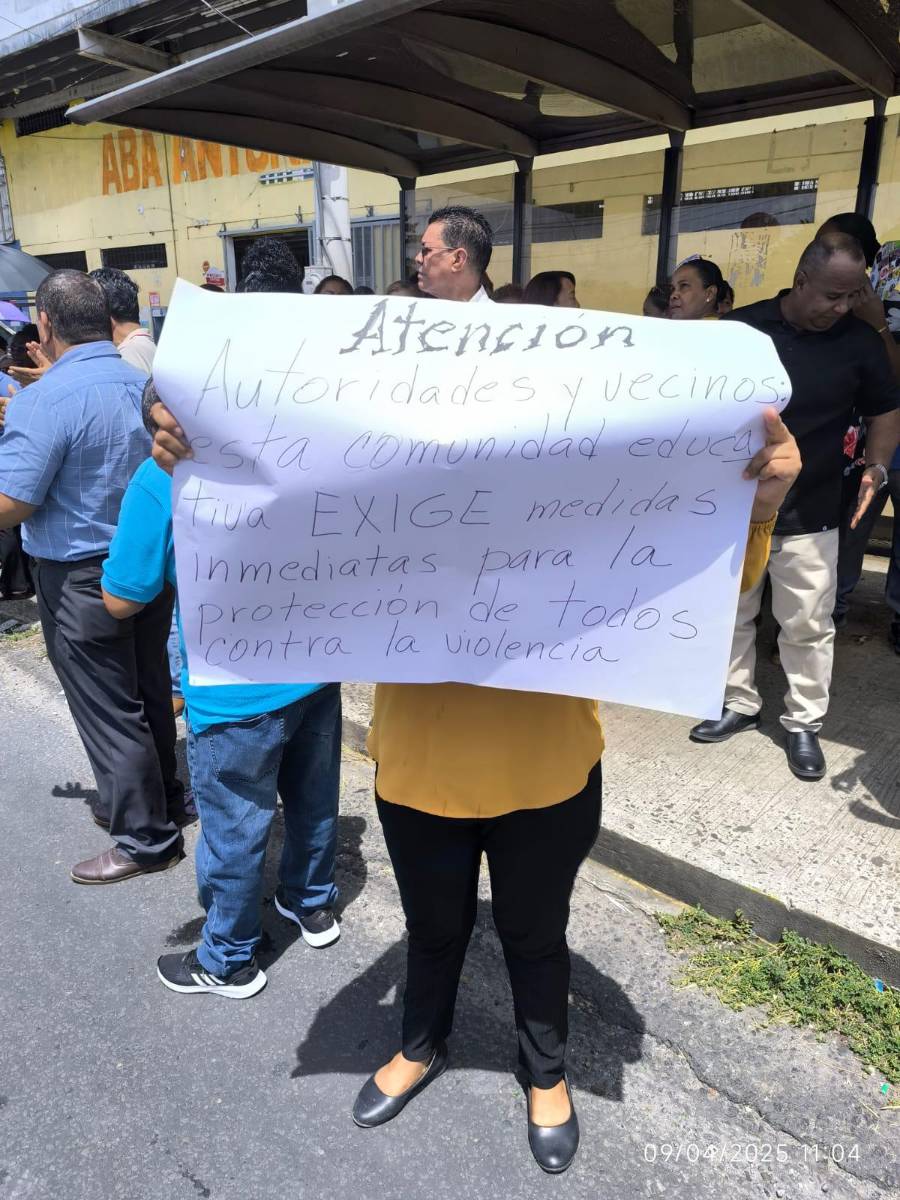 ABA ANTON
Atención
Autoridades y vecinos:
esta comunidad educa
tiva EXIGE medidas
inmediatas para la
protección de todos
contra la violencia
09/04/2025 11:04